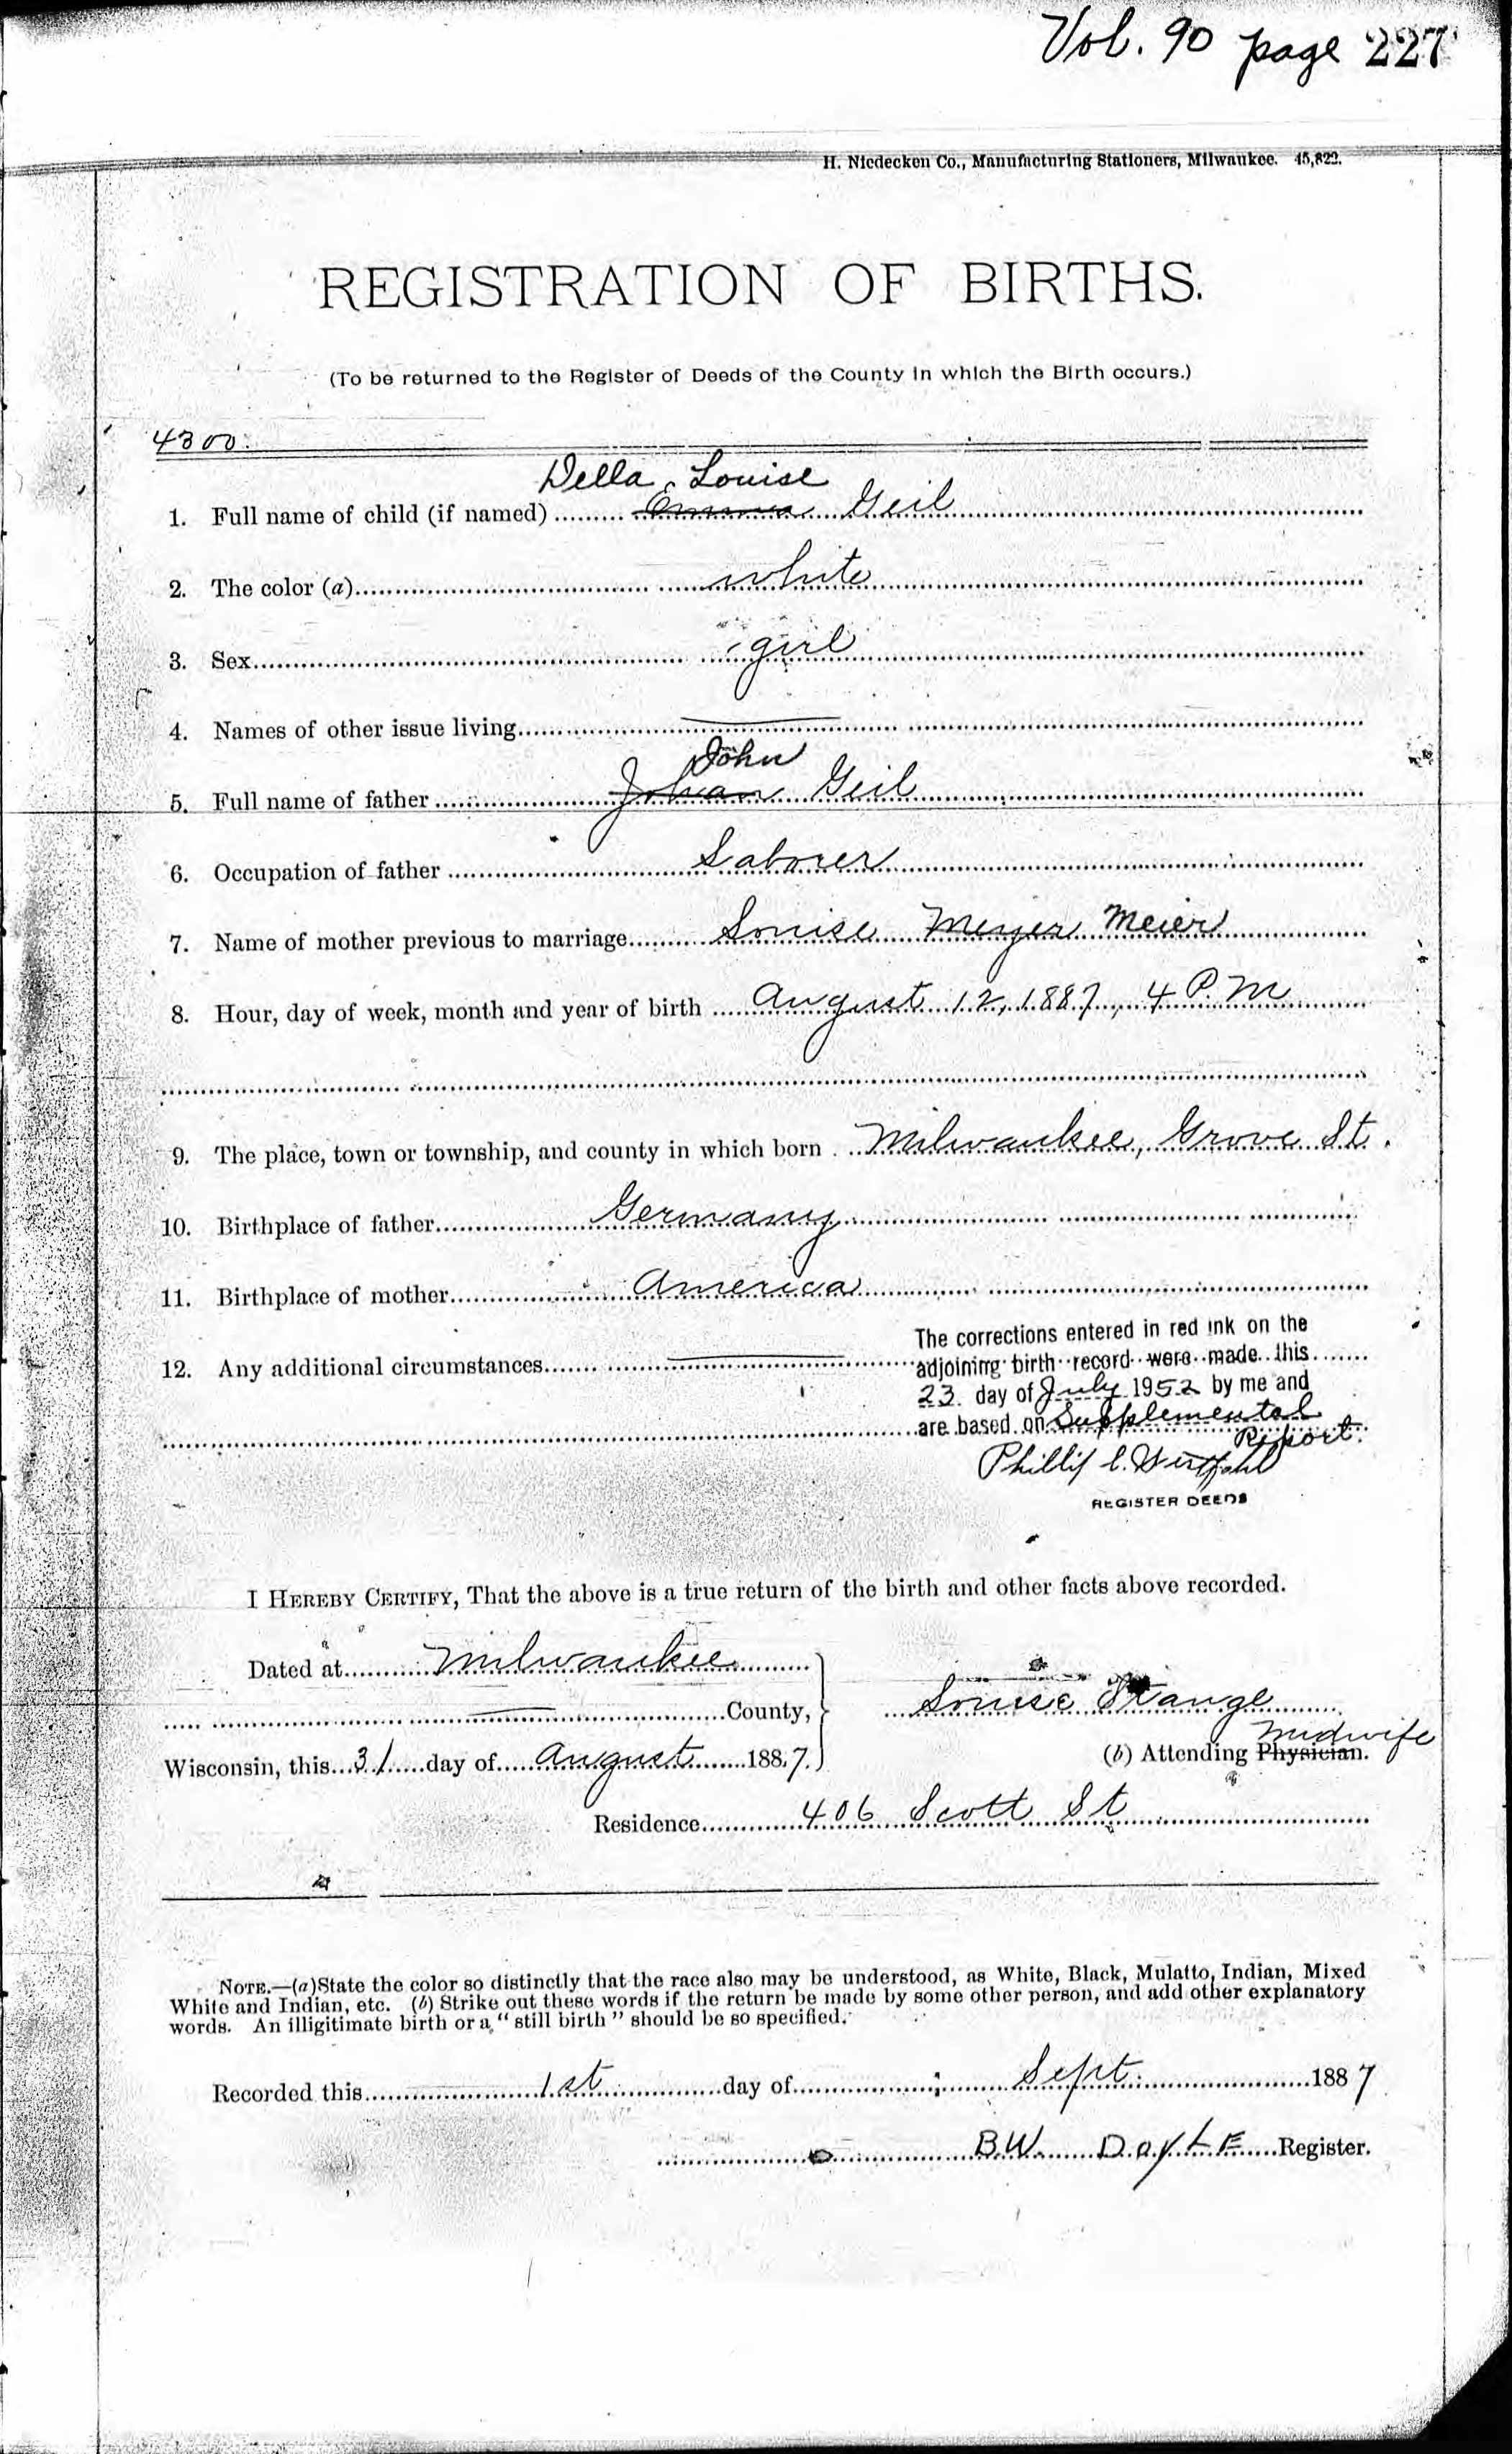 Vol. 90 page 227
H. Niedecken Co., Manufacturing Stationers, Milwaukee. 45,822.
REGISTRATION OF BIRTHS.
(To be returned to the Register of Deeds of the County in which the Birth occurs.)
4300.
Della Louise
1. Full name of child (if named) Emma Geil
2. The color (a) white
3. Sex girl
4. Names of other issue living
John
5. Full name of father Johan Geil
6. Occupation of father Laborer
7. Name of mother previous to marriage Louise Meyer Meier
8. Hour, day of week, month and year of birth August 12, 1887, 4 P.M
9. The place, town or township, and county in which born Milwaukee, Grove St.
10. Birthplace of father Germany
11. Birthplace of mother America
12. Any additional circumstances
The corrections entered in red ink on the
adjoining birth record were made this
23 day of July 1952 by me and
are based on Supplemental
Report.
Phillip C. Westfahl
REGISTER DEEDS
I HEREBY CERTIFY, That the above is a true return of the birth and other facts above recorded.
Dated at Milwaukee
County,
Louise Stange
Midwife
Wisconsin, this 31 day of August 1887.
(b) Attending Physician.
Residence 406 Scott St
NOTE.—(a) State the color so distinctly that the race also may be understood, as White, Black, Mulatto, Indian, Mixed
White and Indian, etc. (b) Strike out these words if the return be made by some other person, and add other explanatory
words. An illigitimate birth or a "still birth" should be so specified.
Recorded this 1st day of Sept. 1887
B.W. Register.